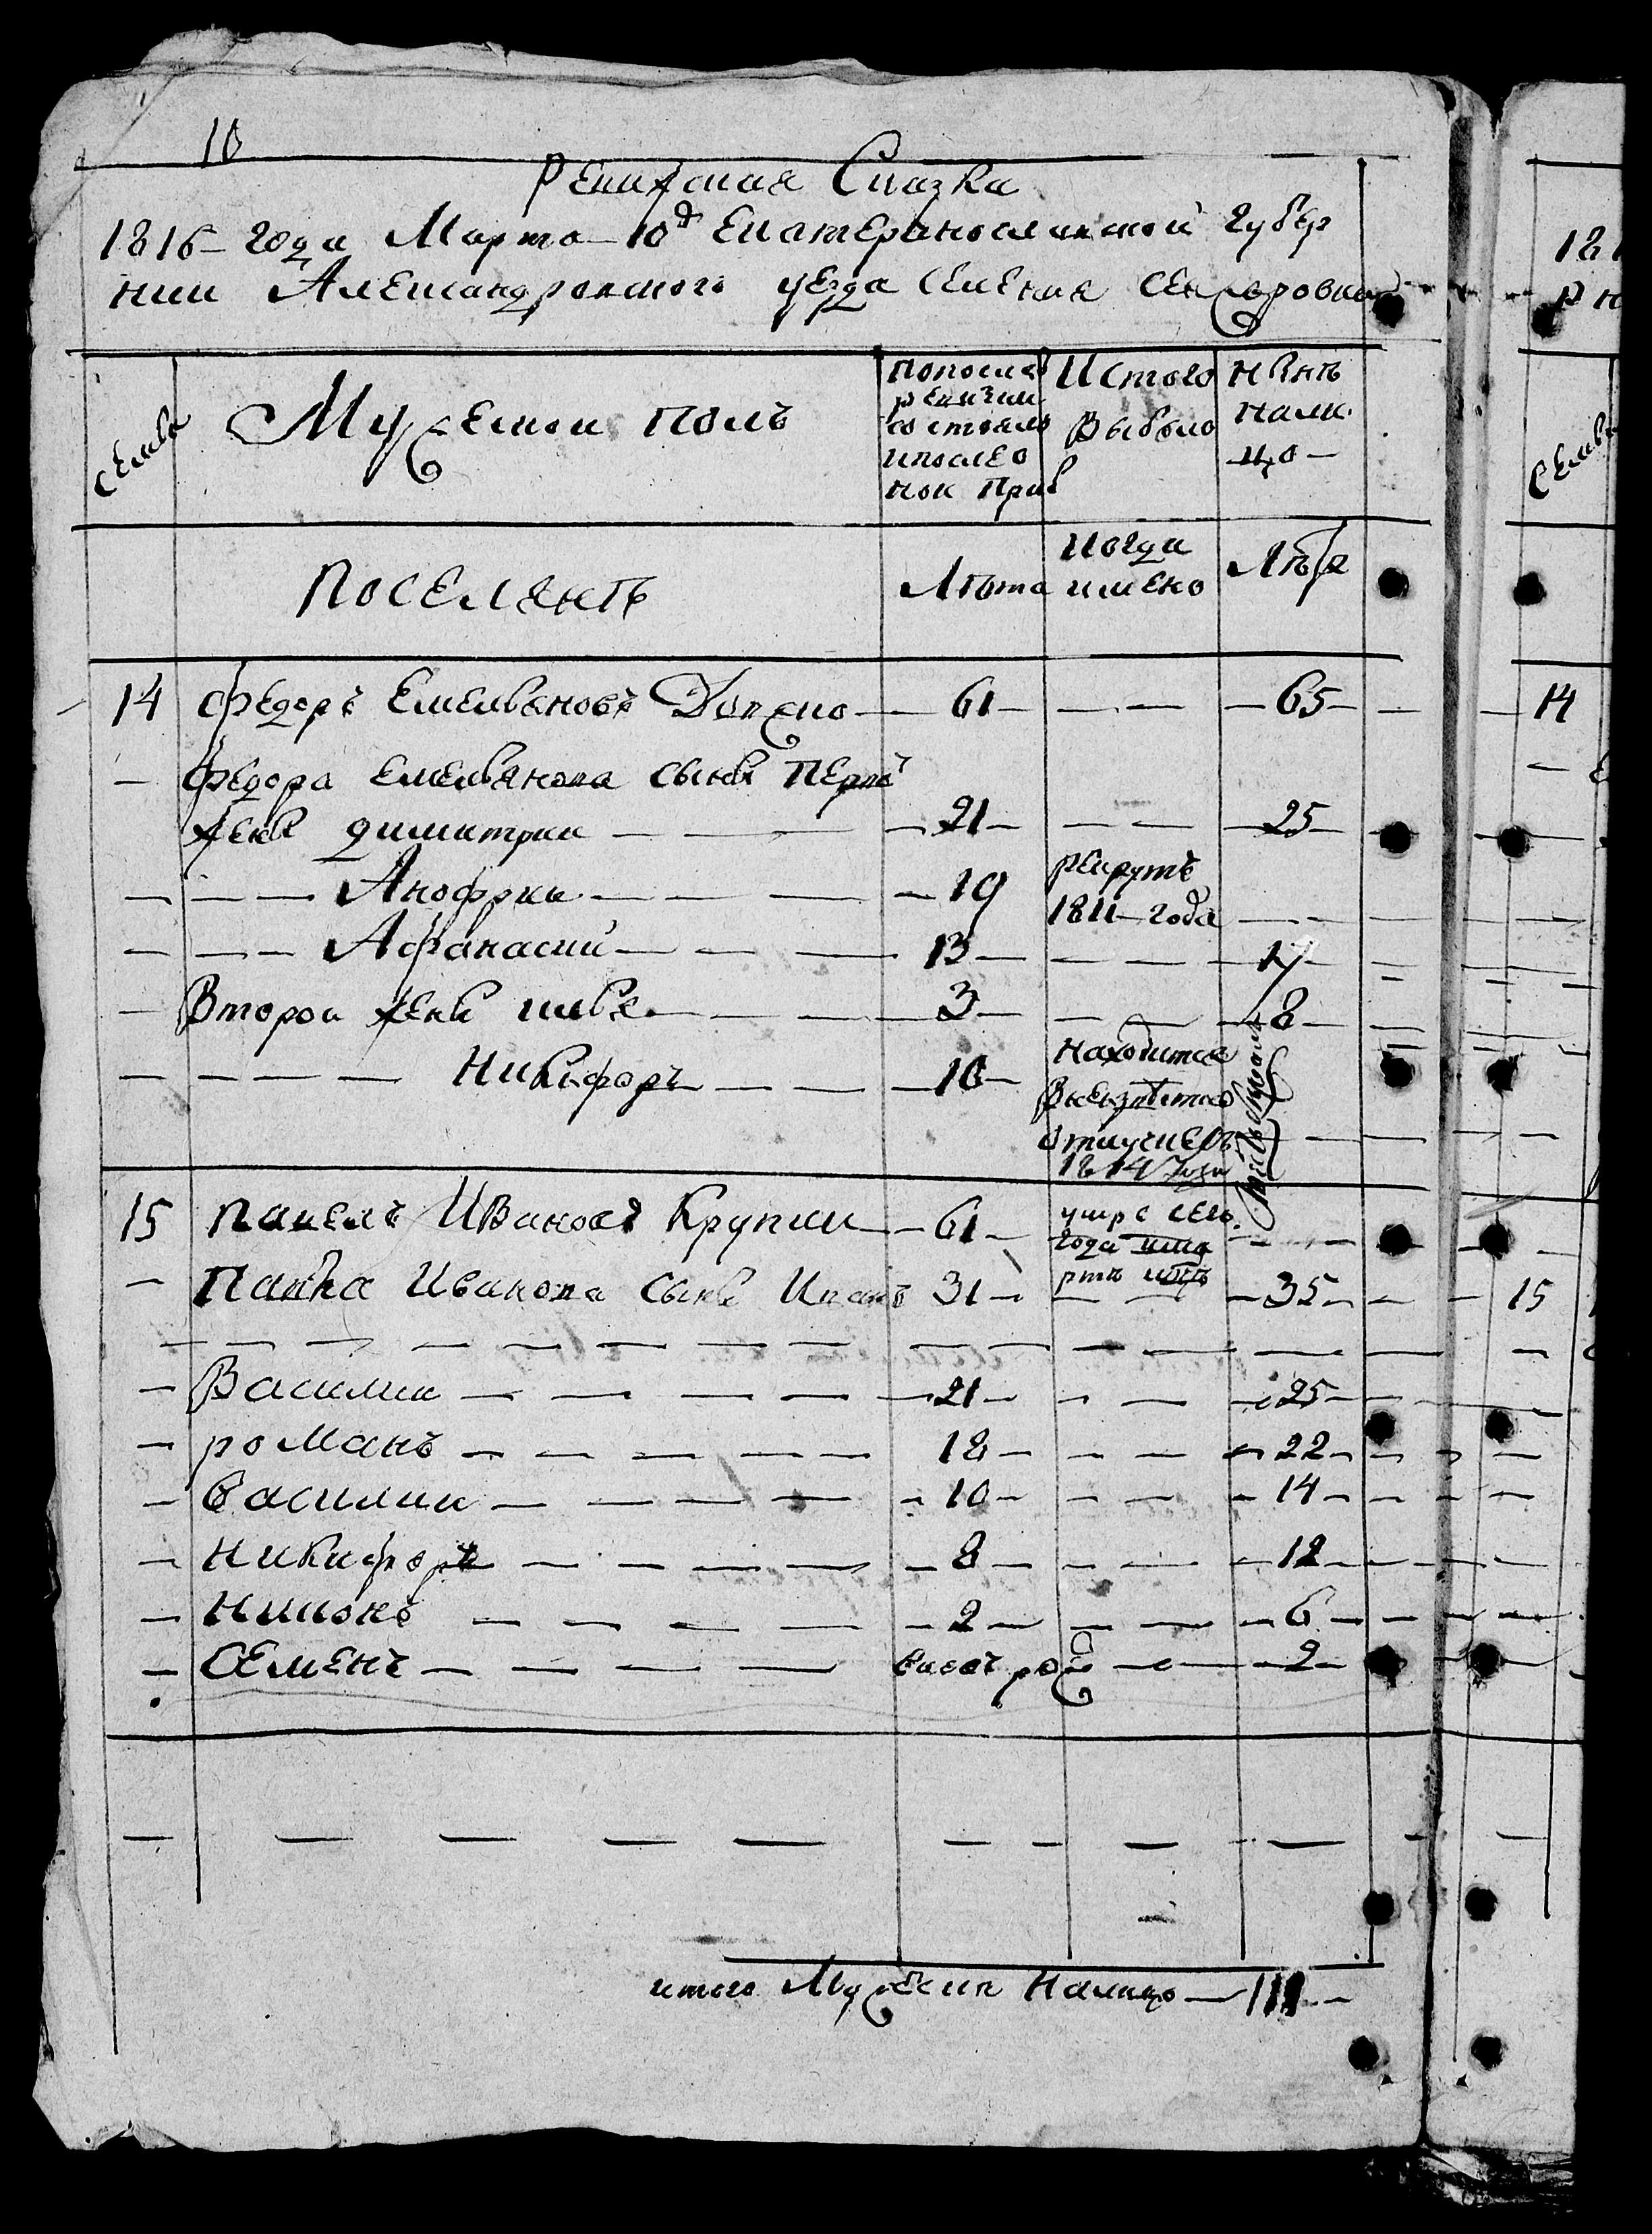 10
Ревижская Сказка
1816 года Марта 10д Екатеринославской губер
нии Александровского уезда селения
Семьи
Мужескои полъ
Попослед
ревизии
состояло
ипослео
нои Приб
Истого
Выбыло
Нынъ
нали
цо
Поселянъ
Лъта
когда
имено
Лъта
14 Федоръ Емельяновъ 61 65
Федора Емельянова сынъ Перво
жены димитрии 21 25
Анофрии 19 рекрутъ
1811 года
Афанасии 13 17
Второи жены илья 3 8
Никифоръ 10 Находится
отлучке
1814 года
15 Павелъ Ивановъ Крупки 61 умре сего
года
Павла Иванова сынъ Иванъ 31 35
Василии 21 25
романъ 18 22
василии 10 14
Никифоръ 8 12
Никонъ 2 6
Семенъ вновъ рож 2
итого Мужеска Налицо 11
181
Семьи
14
15